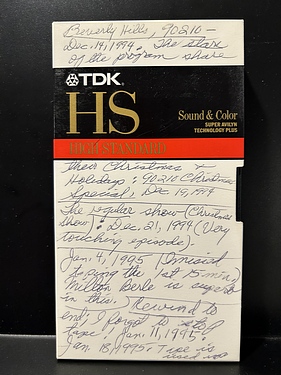 Beverly Hills, 90210 -
Dec. 14, 1994. The Stars
of the program share
TDK
HS
Sound & Color
SUPER AVILYN
TECHNOLOGY PLUS
HIGH STANDARD
their Christmas +
Holidays + 90210 Christmas
Special, Dec 19, 1994
The regular show (Christmas
Show): Dec. 21, 1994 (Very
touching episode).
Jan. 4, 1995 (I missed
taping the 1st 15 min)
Milton Berle is superb
in this. (Rewind to
end; I forgot to
tape). Jan. 11, 1995.
Jan. 18, 1995.